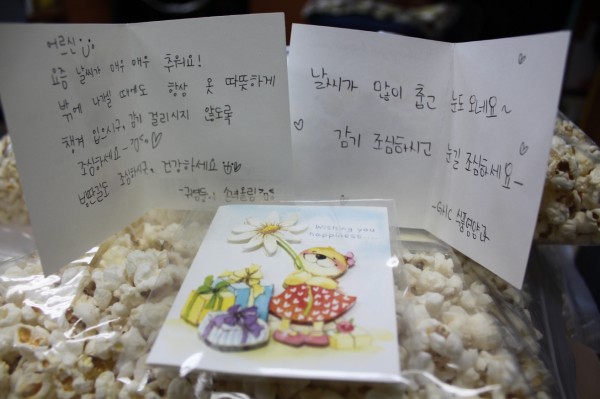 어르신
요즘 날씨가 매우 매우 추워요!
밖에 나가실 때에도 항상 옷 따뜻하게
챙겨 입으시구, 감기 걸리시지 않도록
조심하세요~
빙판길도 조심하시구, 건강하세요
날씨가 많이 춥고 눈도 오네요~
감기 조심하시고 눈길 조심하세요~
wishing you
happiness...